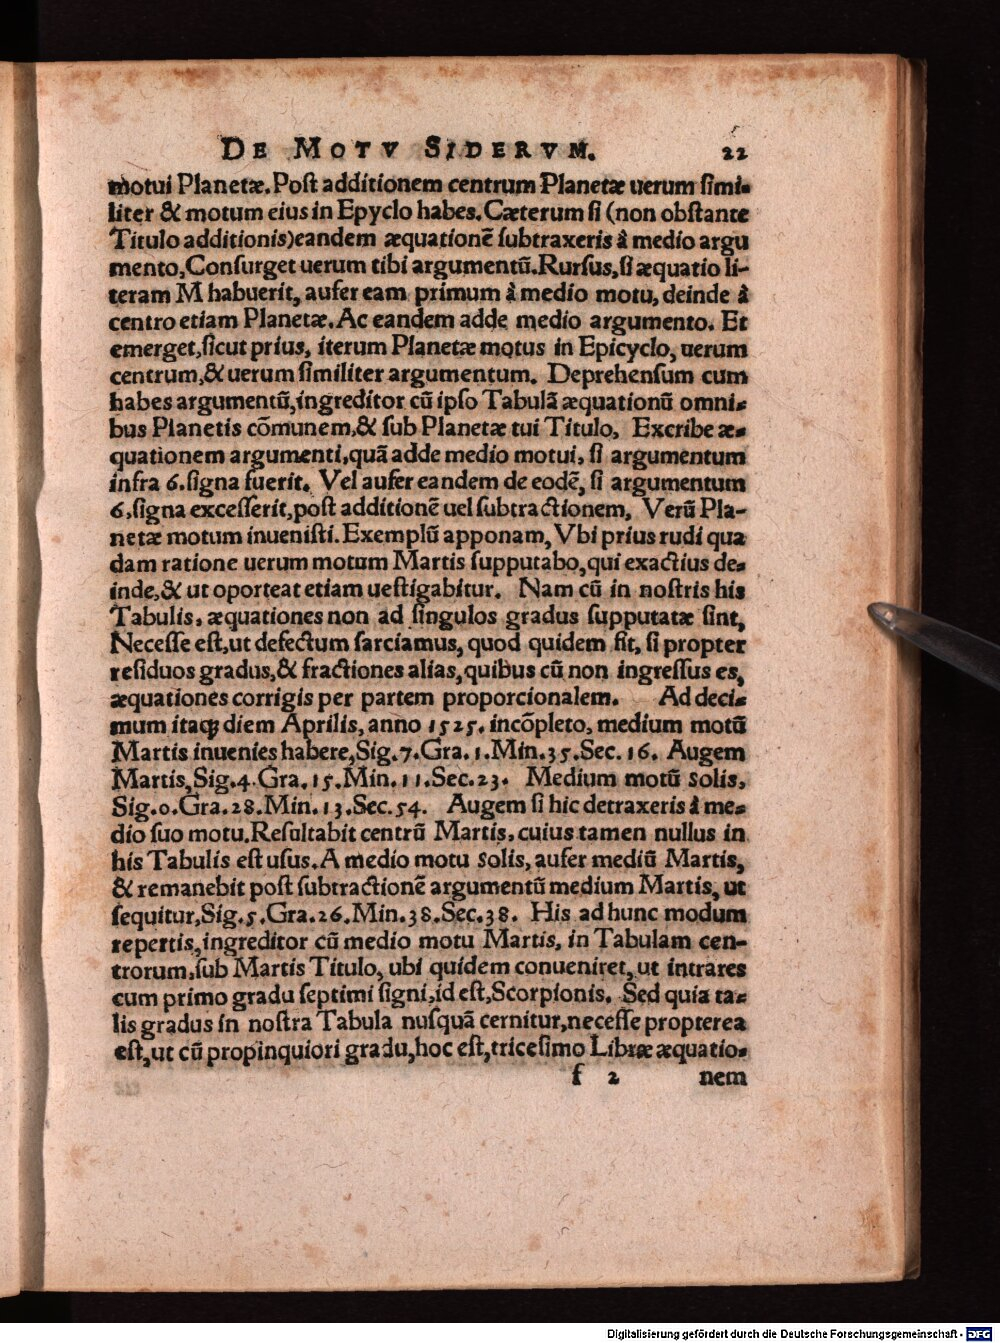 DE MOTV SIDERVM. 22
motui Planetæ. Poſt additionem centrum Planetæ uerum ſimi-
liter & motum eius in Epyclo habes. Cæterum ſi (non obſtante
Titulo additionis) eandem æquationē ſubtraxeris à medio argu
mento, Conſurget uerum tibi argumentū. Rurſus, ſi æquatio li-
teram M habuerit, aufer eam primum à medio motu, deinde à
centro etiam Planetæ. Ac eandem adde medio argumento. Et
emerget, ſicut prius, iterum Planetæ motus in Epicyclo, uerum
centrum, & uerum ſimiliter argumentum. Deprehenſum cum
habes argumentū, ingreditor cū ipſo Tabulā æquationū omni-
bus Planetis cōmunem, & ſub Planetæ tui Titulo, Excribe æ-
quationem argumenti, quā adde medio motui, ſi argumentum
infra 6. ſigna fuerit. Vel aufer eandem de eodē, ſi argumentum
6. ſigna exceſſerit, poſt additionē uel ſubtractionem, Verū Pla-
netæ motum inueniſti. Exemplū apponam, Vbi prius rudi qua
dam ratione uerum motum Martis ſupputabo, qui exactius de-
inde, & ut oporteat etiam ueſtigabitur. Nam cū in noſtris his
Tabulis, æquationes non ad ſingulos gradus ſupputatæ ſint,
Neceſſe eſt, ut defectum ſarciamus, quod quidem fit, ſi propter
reſiduos gradus, & fractiones alias, quibus cū non ingreſſus es,
æquationes corrigis per partem proporcionalem. Ad deci-
mum itaꝗ diem Aprilis, anno 1525. incōpleto, medium motū
Martis inuenies habere, Sig. 7. Gra. 1. Min. 35. Sec. 16. Augem
Martis, Sig. 4. Gra. 15. Min. 11. Sec. 23. Medium motū Solis,
Sig. 0. Gra. 28. Min. 13. Sec. 54. Augem ſi hic detraxeris à me-
dio ſuo motu. Reſultabit centrū Martis, cuius tamen nullus in
his Tabulis eſt uſus. A medio motu Solis, aufer mediū Martis,
& remanebit poſt ſubtractionē argumentū medium Martis, ut
ſequitur, Sig. 5. Gra. 26. Min. 38. Sec. 38. His ad hunc modum
repertis, ingreditor cū medio motu Martis, in Tabulam cen-
trorum, ſub Martis Titulo, ubi quidem conueniret, ut intrares
cum primo gradu ſeptimi ſigni, id eſt, Scorpionis. Sed quia ta-
lis gradus in noſtra Tabula nuſquā cernitur, neceſſe propterea
eſt, ut cū propinquiori gradu, hoc eſt, triceſimo Libræ æquatio-
f 2 nem
Digitalisierung gefördert durch die Deutsche Forschungsgemeinschaft - DFG